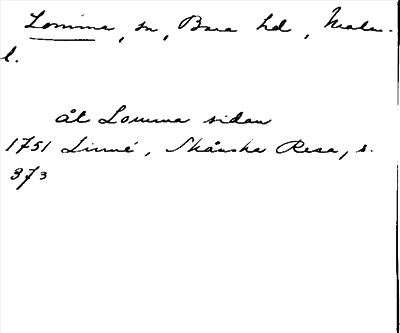 Lomma, sn, Bara hd, Malm.
l.
åt Lomma sidan
1751 Linné, Skånska Resa, s.
373